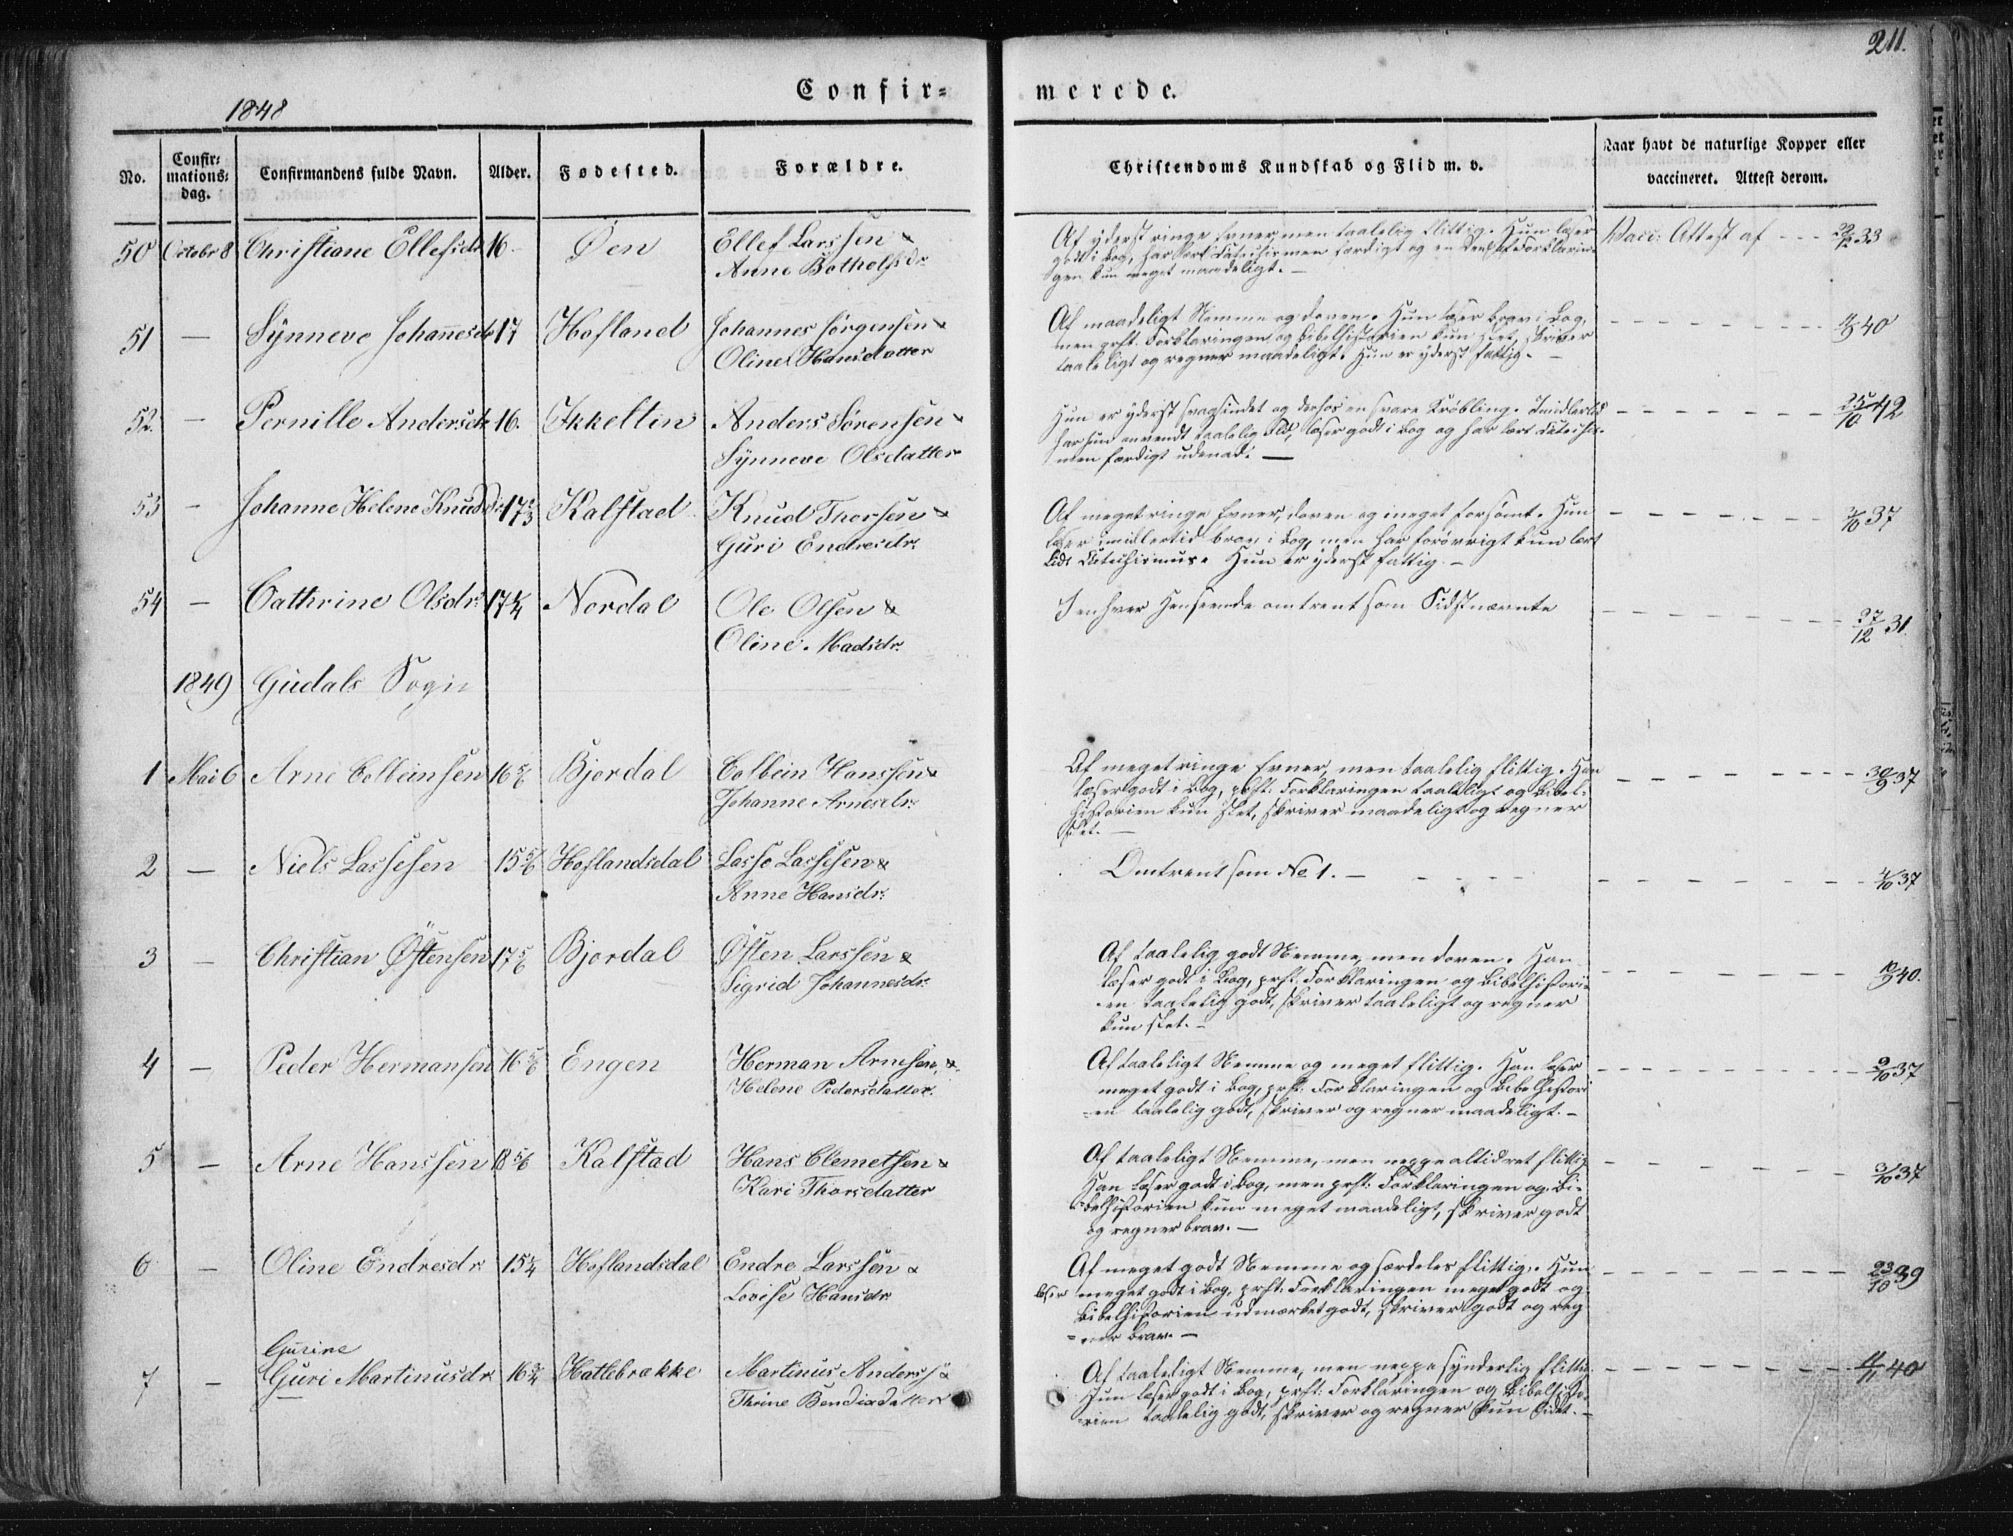 211.
Confir=
merede.
1848
No.
Confir=
mations=
dag.
Confirmandens fulde Navn.
Alder.
Fødested.
Forældre.
Christendoms Kundskab og Flid m. v.
Naar havt de naturlige Kopper eller
vaccineret. Attest derom.
50 Octobr 8 Christiane Ellefsdr 16 Øen Ellef Larssen &
Anne Botholfsdr
Af yderst ringe Evner men taalelig flittig. Hun læser
godt i Bog, har lært Catechismen færdigt og en Deel af Forklarin-
gen kun meget maadeligt. —
Vacc: Attest af - - - 33
51 — Synneve Johannesdr 17 Hofland Johannes Jørgensen &
Oline Hansdatter
Af maadeligt Nemme og doven. Hun læser brav i Bog,
men prst. Forklaringen og Bibelhistorien kun slet, skriver
taaleligt og regner maadeligt. Hun er yderst fattig. —
40
52. — Pernille Andersdr 16. Ikkeltin Anders Sørensen &
Synneve Olsdatter
Hun er yderst svagsindet og derhos en svare Krøbling. Imidlertid
har hun anvendt taalelig Flid, læser godt i Bog og har lært Catechis-
men færdigt udenad. —
25/10 42
53 — Johanne Helene Knudsdr 17 2/3 Kalstad Knud Thorsen &
Guri Endresdr.
Af meget ringe Evner, doven og meget forsømt. Hun
læser imidlertid brav i Bog, men har forøvrigt kun lært
Lids Catechismus. Hun er yderst fattig. —
37
54 — Cathrine Olsdr. 17 1/4 Nordal Ole Olsen &
Oline Madsdr.
I enhver Henseende omtrent som Sidstnævnte
27/12 31.
1849 Gudals Sogn
1 Mai 6 Arne Colbeinsen 16 5/6 Bjordal Colbein Hanssen &
Johanne Arnesdr.
Af meget ringe Evner, men taalelig flittig. Han
læser godt i Bog, prst. Forklaringen taaleligt og Bibel-
historien kun slet, skriver maadeligt og regner
slet. —
30/9 37
2 — Niels Lassesen 15 5/6 Hoflandsdal Lasse Lassesen &
Anne Hansdr.
Omtrent som No 1. —
4/10 37
3 — Christian Østensen 17 5/6 Bjordal Østen Larssen &
Sigrid Johannesdr.
Af taalelig godt Nemme, men doven. Han
læser godt i Bog, prst. Forklaringen og Bibelhistori-
en taalelig godt, skriver taaleligt og regner
kun slet. —
40.
4 — Peder Hermansen 16 5/6 Engen Herman Arnesen &
Helene Pedersdatter.
Af taaleligt Nemme og meget flittig. Han læser
meget godt i Bog, prst. Forklaringen og Bibelhistori
-en taalelig godt, skriver og regner maadeligt. —
37
5 — Arne Hanssen 18 5/6 Kalstad Hans Clemetsen &
Kari Thorsdatter
Af taaleligt Nemme, men neppe altid ret flittig
Han læser godt i Bog, men prst. Forklaringen og Bi-
belhistorien kun meget maadeligt, skriver godt
og regner brav. —
3/10 37
6 — Oline Endresdr. 15 3/4 Hoflandsdal Endre Larssen &
Lovise Hansdr.
Af meget godt Nemme og særdeles flittig. Hun
læser meget godt i Bog, prst. Forklaringen meget godt og
Bibelhistorien udmærket godt, skriver godt og reg
-ner brav. —
23/10 39
Gurine
7 — Guri Martinusdr 16 3/4 Hattebrække Martinus Anderss &
Thrine Bendixdatter
Af taaleligt Nemme, men neppe synderlig flittig.
Hun læser godt i Bog, prst. Forklaringen og Bibelhisto-
rien taalelig godt, skriver og regner kun lidet. —
11/11 40